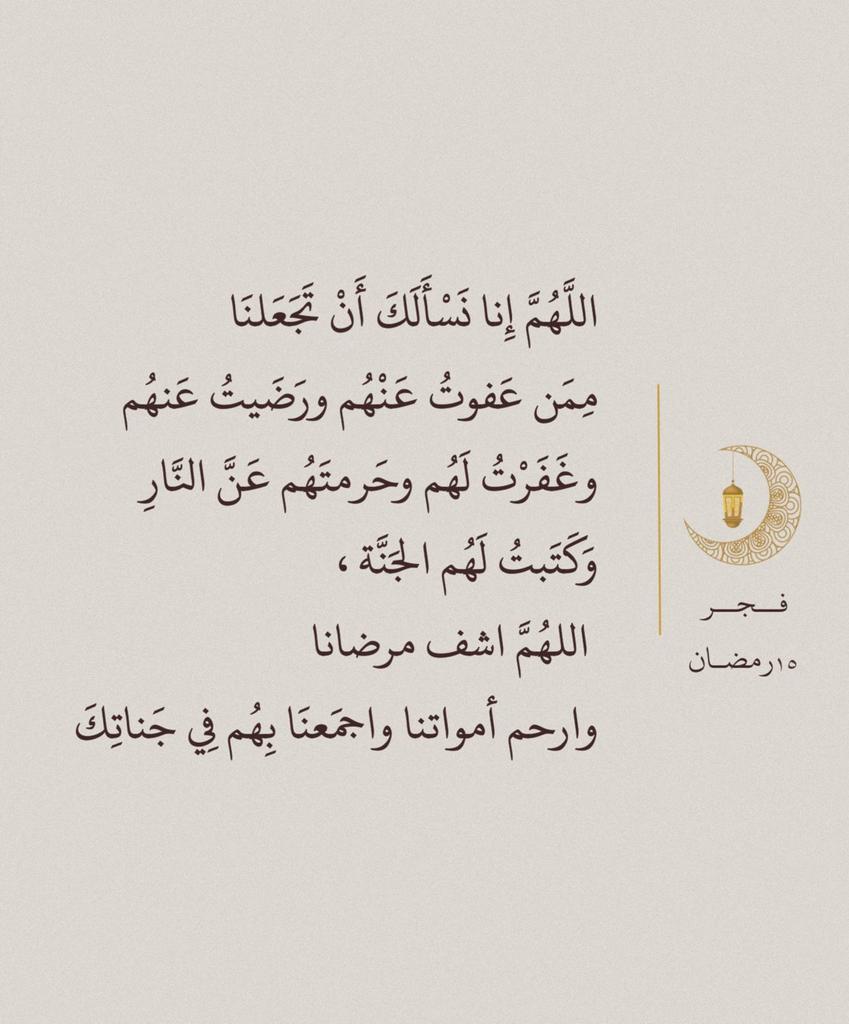 اللَّهُمَّ إِنا نَسْأَلَكَ أَنْ تَجَعَلنَا
مِمَن عَفوتُ عَنْهُم ورَضَيتُ عَنهُم
وغَفَرْتُ لَهُم وحَرمتَهُم عَنَّ النَّارِ
وَكَتَبتُ لَهُم الجَنَّة ،
اللهُمَّ اشف مرضانا
وارحم أمواتنا واجمَعنَا بِهُم فِي جَناتِكَ
فـــجـــر
١٥رمضـان